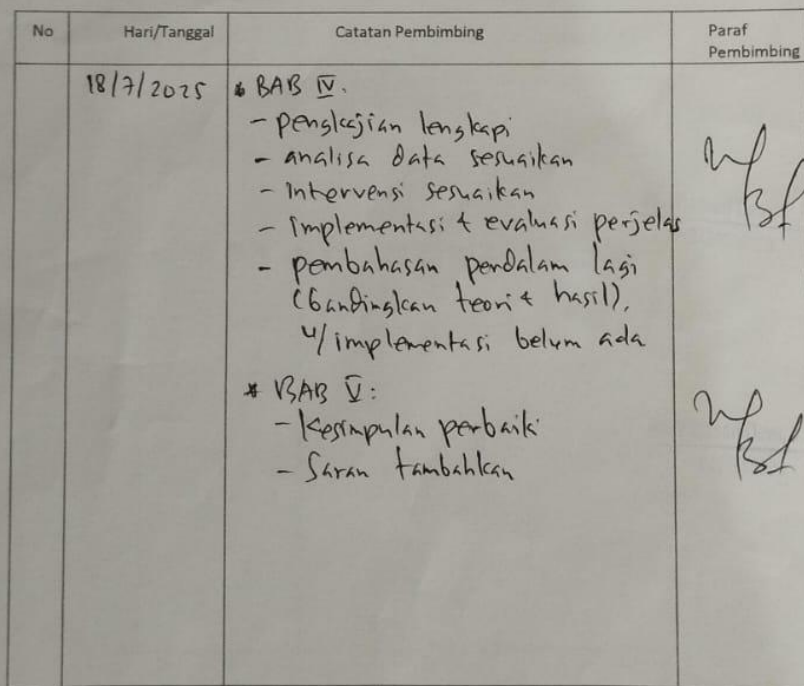 No Hari/Tanggal Catatan Pembimbing Paraf
Pembimbing
18/7/2025 * BAB IV.
- pengkajian lengkapi
- analisa data sesuaikan
- Intervensi sesuaikan
- Implementasi & evaluasi perjelas
- pembahasan perdalam lagi
(bandingkan teori & hasil),
u/ implementasi belum ada
* BAB V:
- Kesimpulan perbaiki
- Saran tambahkan